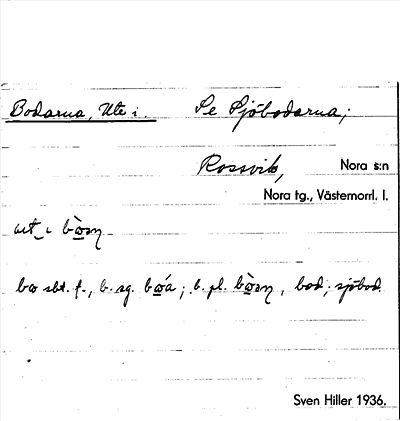 Bodarna, Ute i. Se Sjöbodarna;
Rossvik, Nora s:n
Nora tg., Västernorrl. l.
ɯt_ ɩ
sbt. f., b. sg. ; b. pl. , bod, sjöbod.
Sven Hiller 1936.